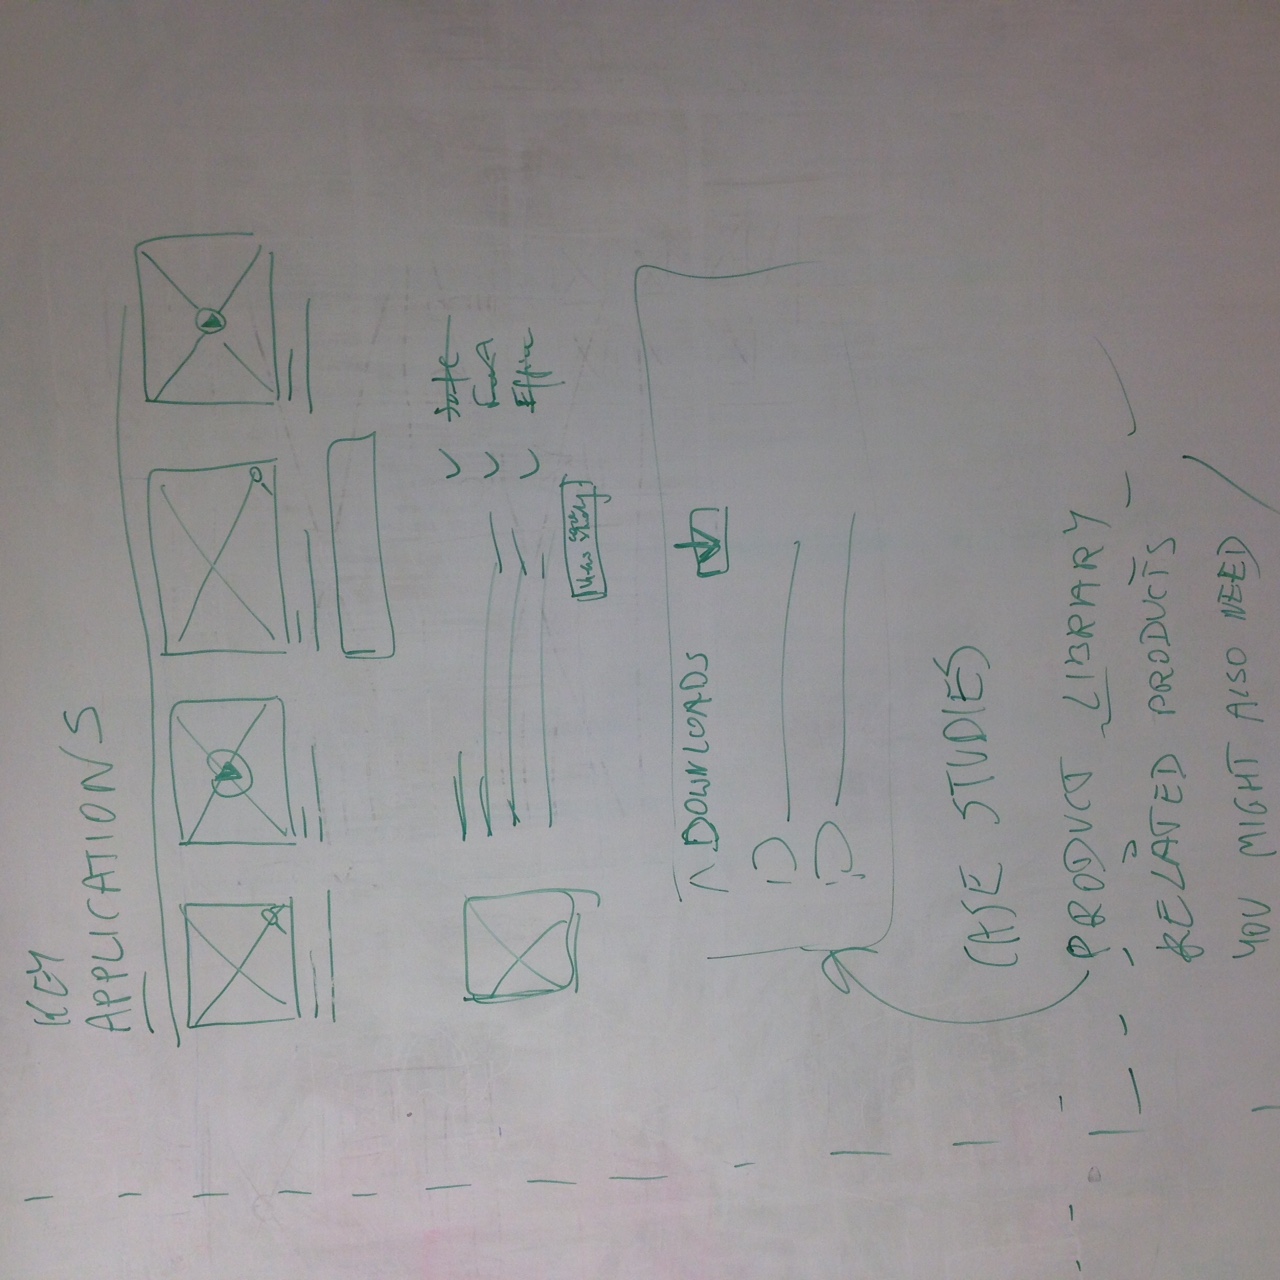 KEY
APPLICATIONS
Safe
View case study
DOWNLOADS
CASE STUDIES
PRODUCT LIBRARY
RELATED PRODUCTS
YOU MIGHT ALSO NEED